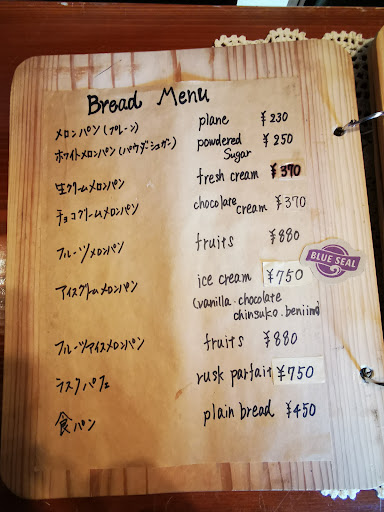 Bread Menu
メロンパン(プレーン) plane ¥230
ホワイトメロンパン(パウダーシュガー) powdered Sugar ¥250
生クリームメロンパン fresh cream ¥370
チョコクリームメロンパン chocolate cream ¥370
フルーツメロンパン fruits ¥880
BLUE SEAL
アイスクリームメロンパン ice cream ¥750
(vanilla・chocolate
chinsuko・beniimo)
フルーツアイスメロンパン fruits ¥880
ラスクパフェ rusk parfait ¥750
食パン plain bread ¥450